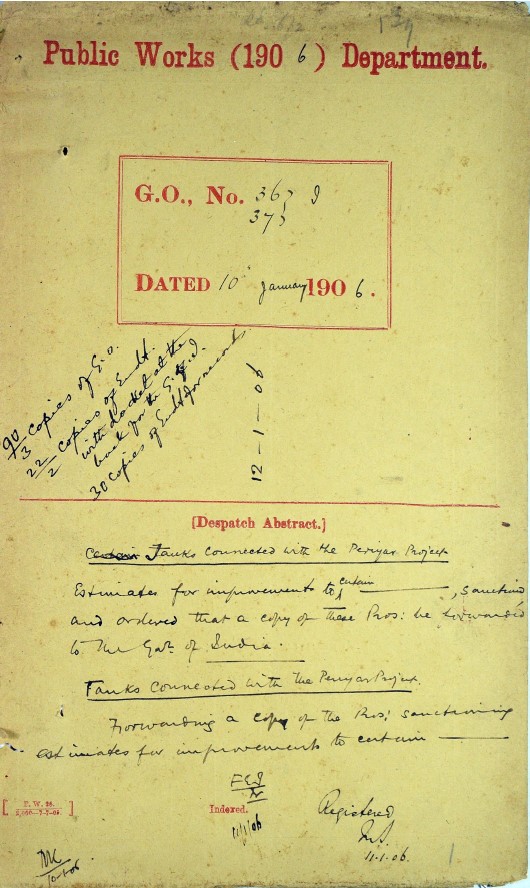 Public Works (190 6) Department.
G.O., No. 36 I
37
DATED 10 January 1906.
90 copies of G.O.
3
22 copies of Endt.
2 with docket at the
back for the G. of I.
30 copies of Endt for record
12-1-06
[Despatch Abstract.]
Certain Tanks Connected with the Periyar Project
Estimates for improvements to certain ———, sanctioned
and ordered that a copy of these Pros: be forwarded
to the Govt. of India.
Tanks Connected with the Periyar Project.
Forwarding a copy of the Pros: sanctioning
estimates for improvements to certain ———
Indexed.
11/1/06
Registered
11.1.06.
10-1-06